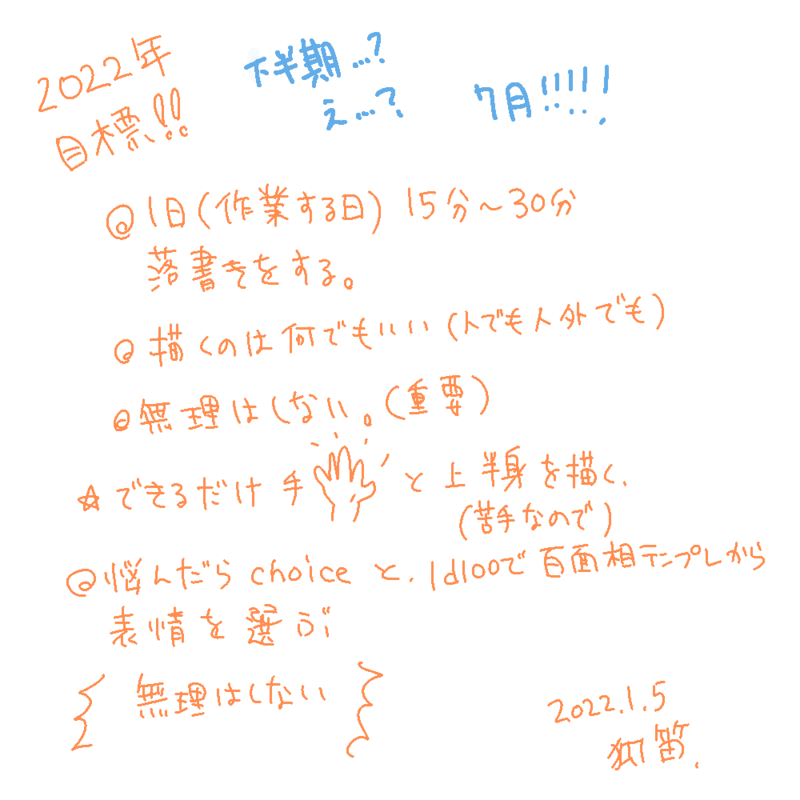 2022年
目標!!
下半期…?
え…?
7月!!!!!
◎1日(作業する日) 15分～30分
落書きをする。
◎描くのは何でもいい(人でも人外でも)
◎無理はしない。(重要)
☆できるだけ手と上半身を描く.
(苦手なので)
◎悩んだらchoiceと、1d100で百面相テンプレから
表情を選ぶ
無理はしない
2022.1.5
笛.